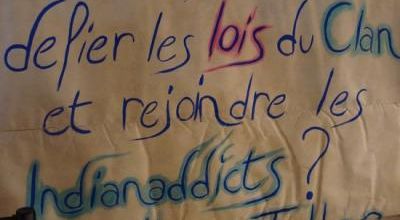 défier les lois du Clan
et rejoindre les
Indianaddicts ?